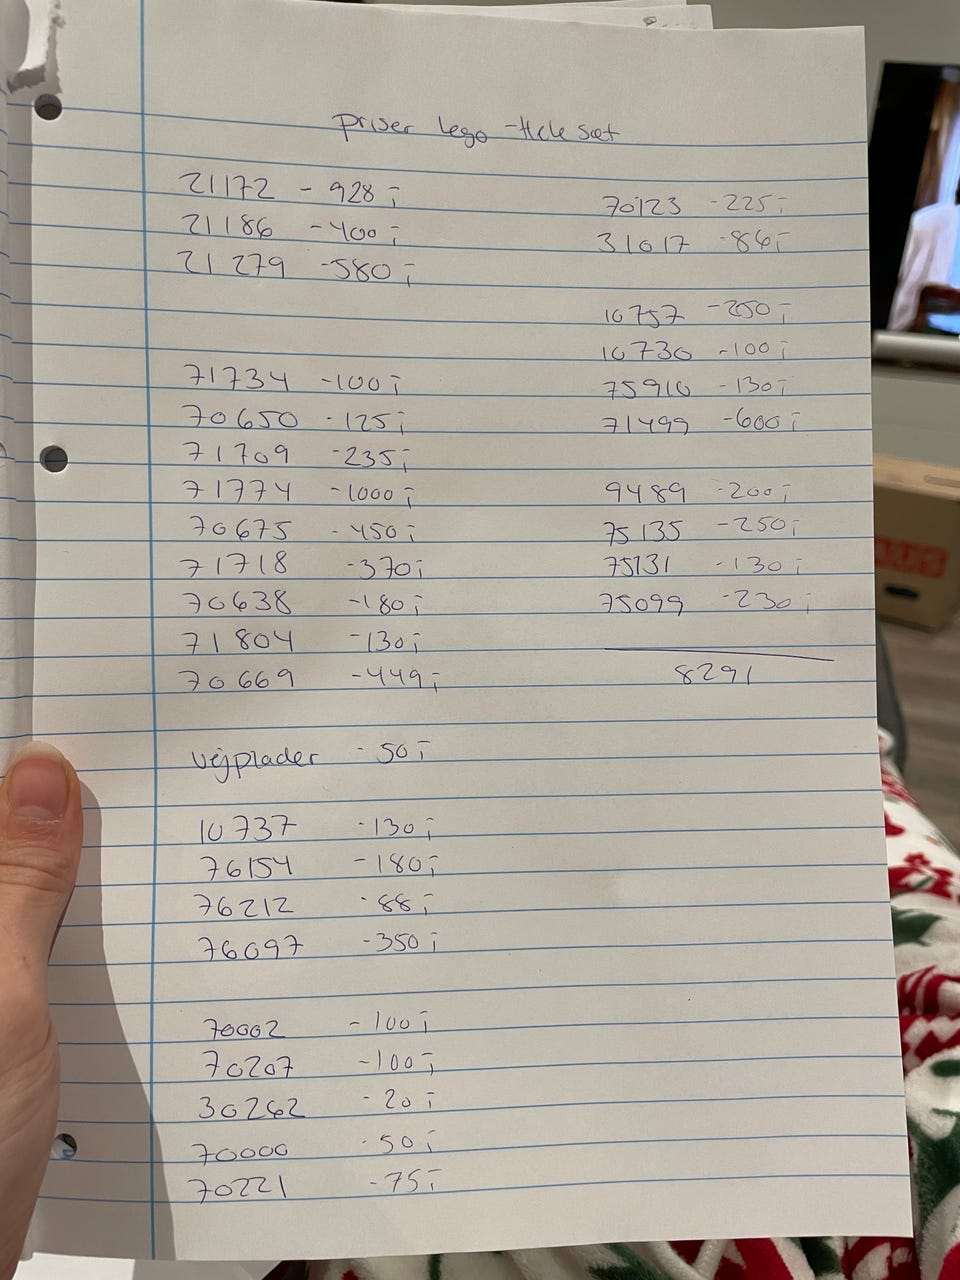 Priser Lego - Hele sæt
21172 - 928,-
21186 - 400,-
21279 - 580,-
71734 - 100,-
70650 - 125,-
71709 - 235,-
71774 - 1000,-
70675 - 450,-
71718 - 370,-
70638 - 180,-
71804 - 130,-
70669 - 449,-
Vejplader - 50,-
10737 - 130,-
76154 - 180,-
76212 - 88,-
76097 - 350,-
70002 - 100,-
70207 - 100,-
30262 - 20,-
70000 - 50,-
70221 - 75,-
70123 - 225,-
31017 - 86,-
10757 - 250,-
10730 - 100,-
75910 - 130,-
71499 - 600,-
9489 - 200,-
75135 - 250,-
75131 - 130,-
75099 - 230,-
8291